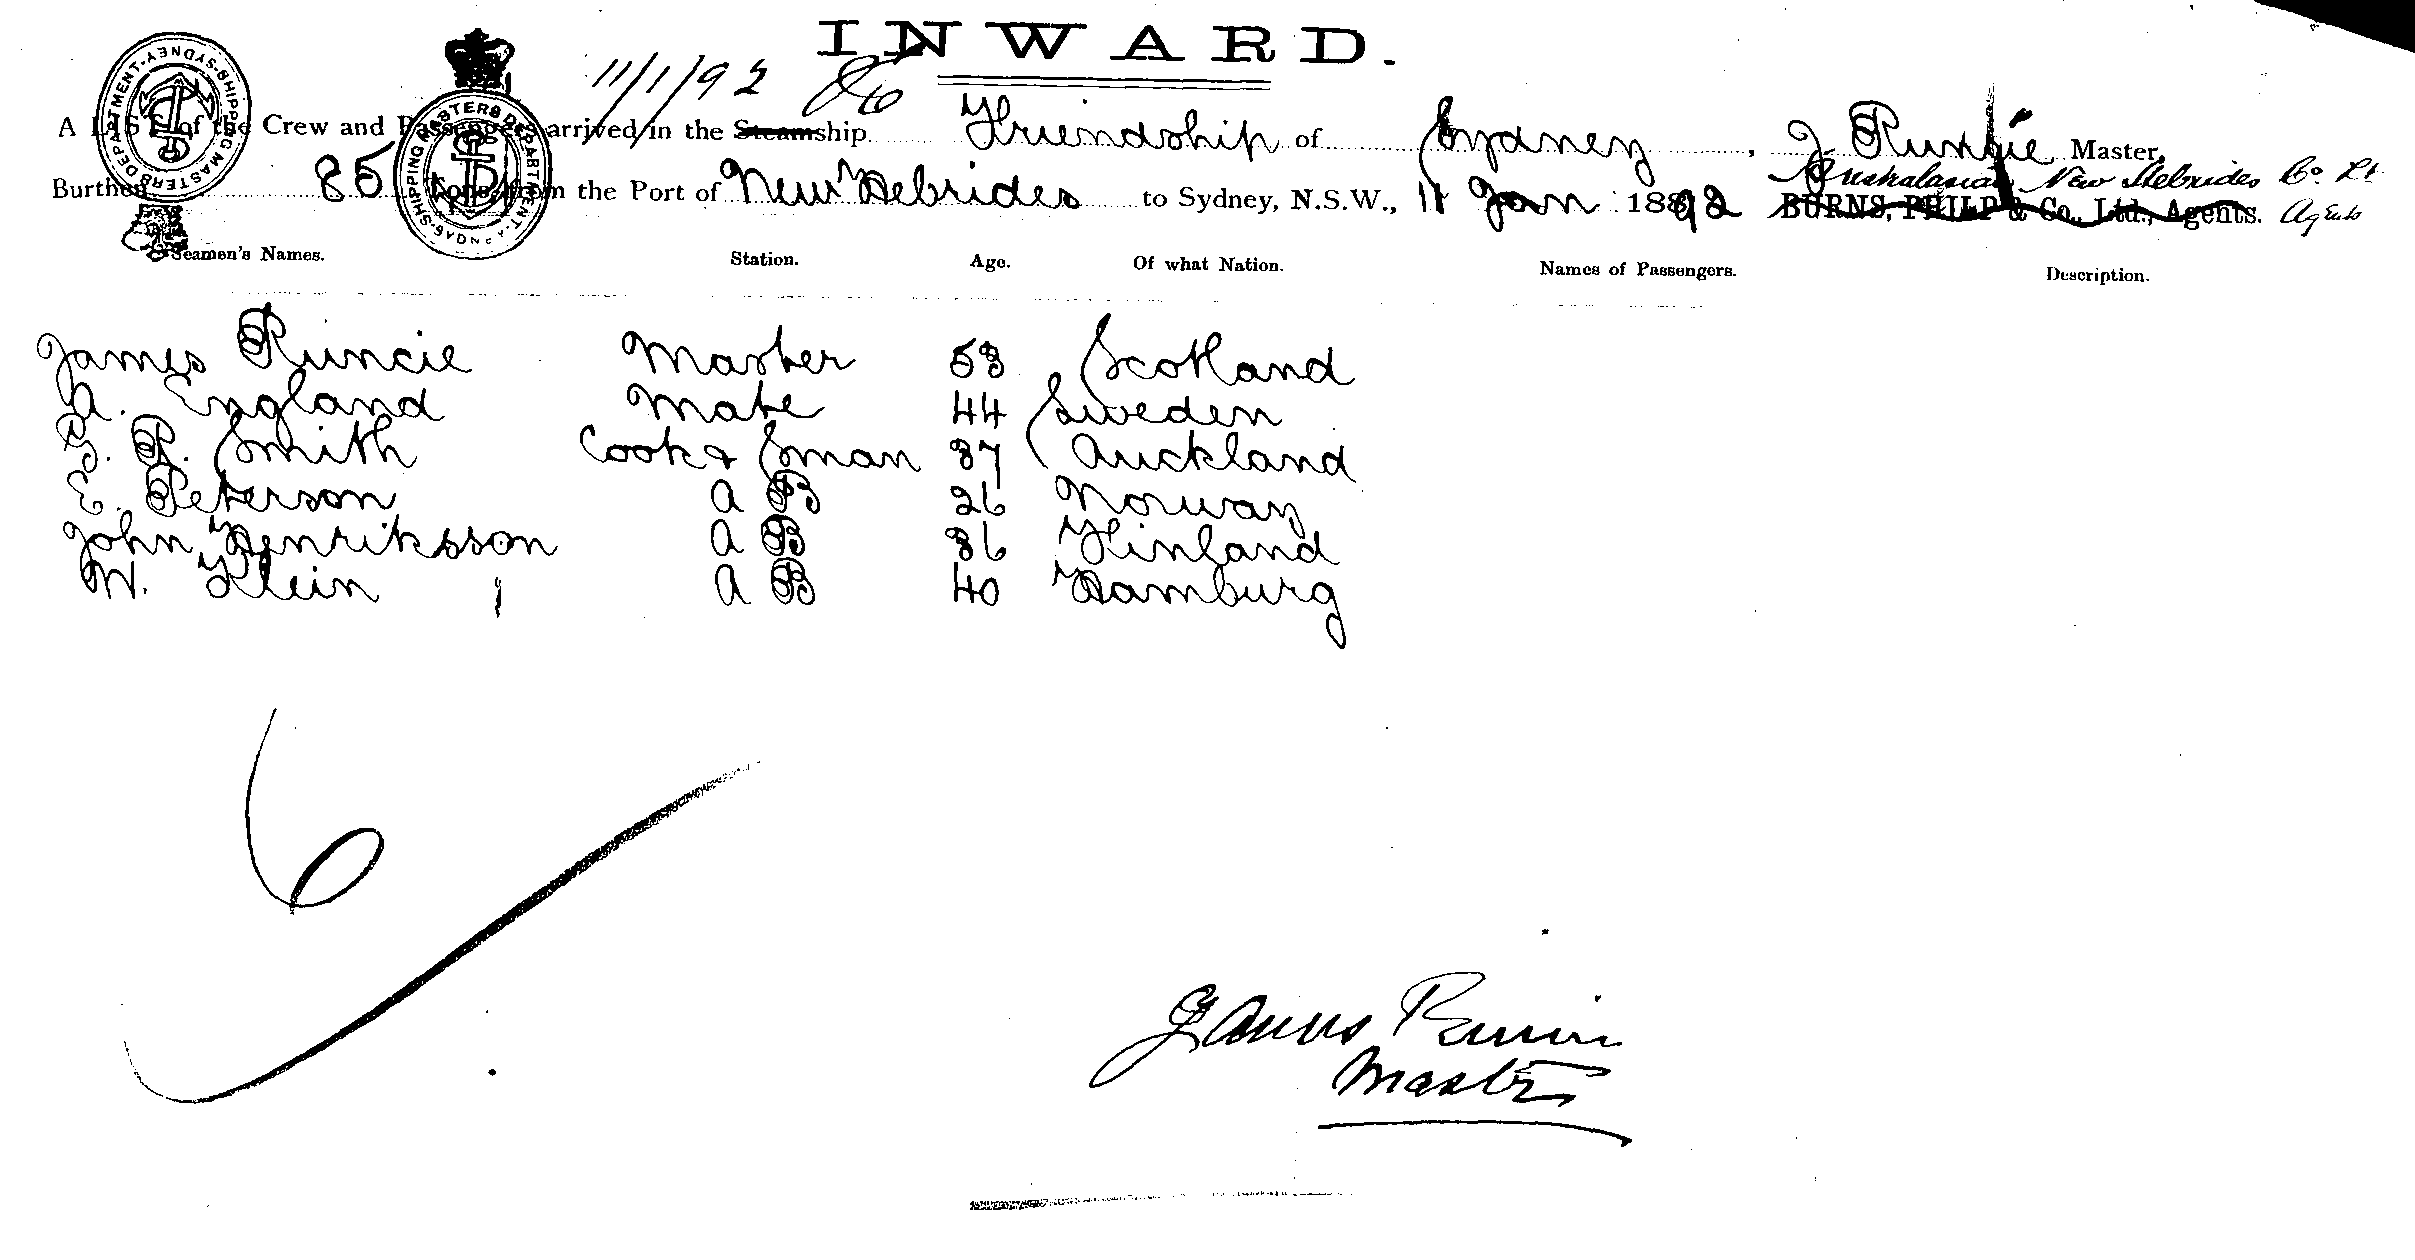 INWARD.
11/1/92
A LIST of the Crew and Passengers arrived in the Steamship Friendship of Sydney, J Runcie Master,
Burthen 85 Tons, from the Port of New Hebrides to Sydney, N.S.W., 11 Jan 1892 Australasian New Hebrides Co. Lt
BURNS, PHILP & Co., Ltd., Agents. Agents
SHIPPING MASTERS DEPARTMENT · SYDNEY
SHIPPING MASTERS DEPARTMENT · SYDNEY
Seamen's Names. Station. Age. Of what Nation. Names of Passengers. Description.
James Runcie Master 53 Scotland
A. England Mate 44 Sweden
G. R. Smith Cook & Sman 37 Auckland
E. Peterson A B 26 Norway
John Henriksson A B 36 Finland
W. Klein A B 40 Hamburg
6
James Runcie
Master